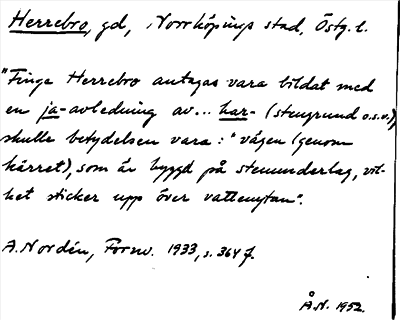 Herrebro, gd, Norrköpings stad, Östg. l.
"Finge Herrebro antagas vara bildat med
en ja-avledning av... har- (stengrund o.s.v.),
skulle betydelsen vara: "vägen (genom
kärret), som är byggd på stenunderlag, vil-
ket sticker upp över vattenytan".
A. Nordén, Fornv. 1933, s. 364 f.
Å.N. 1952.